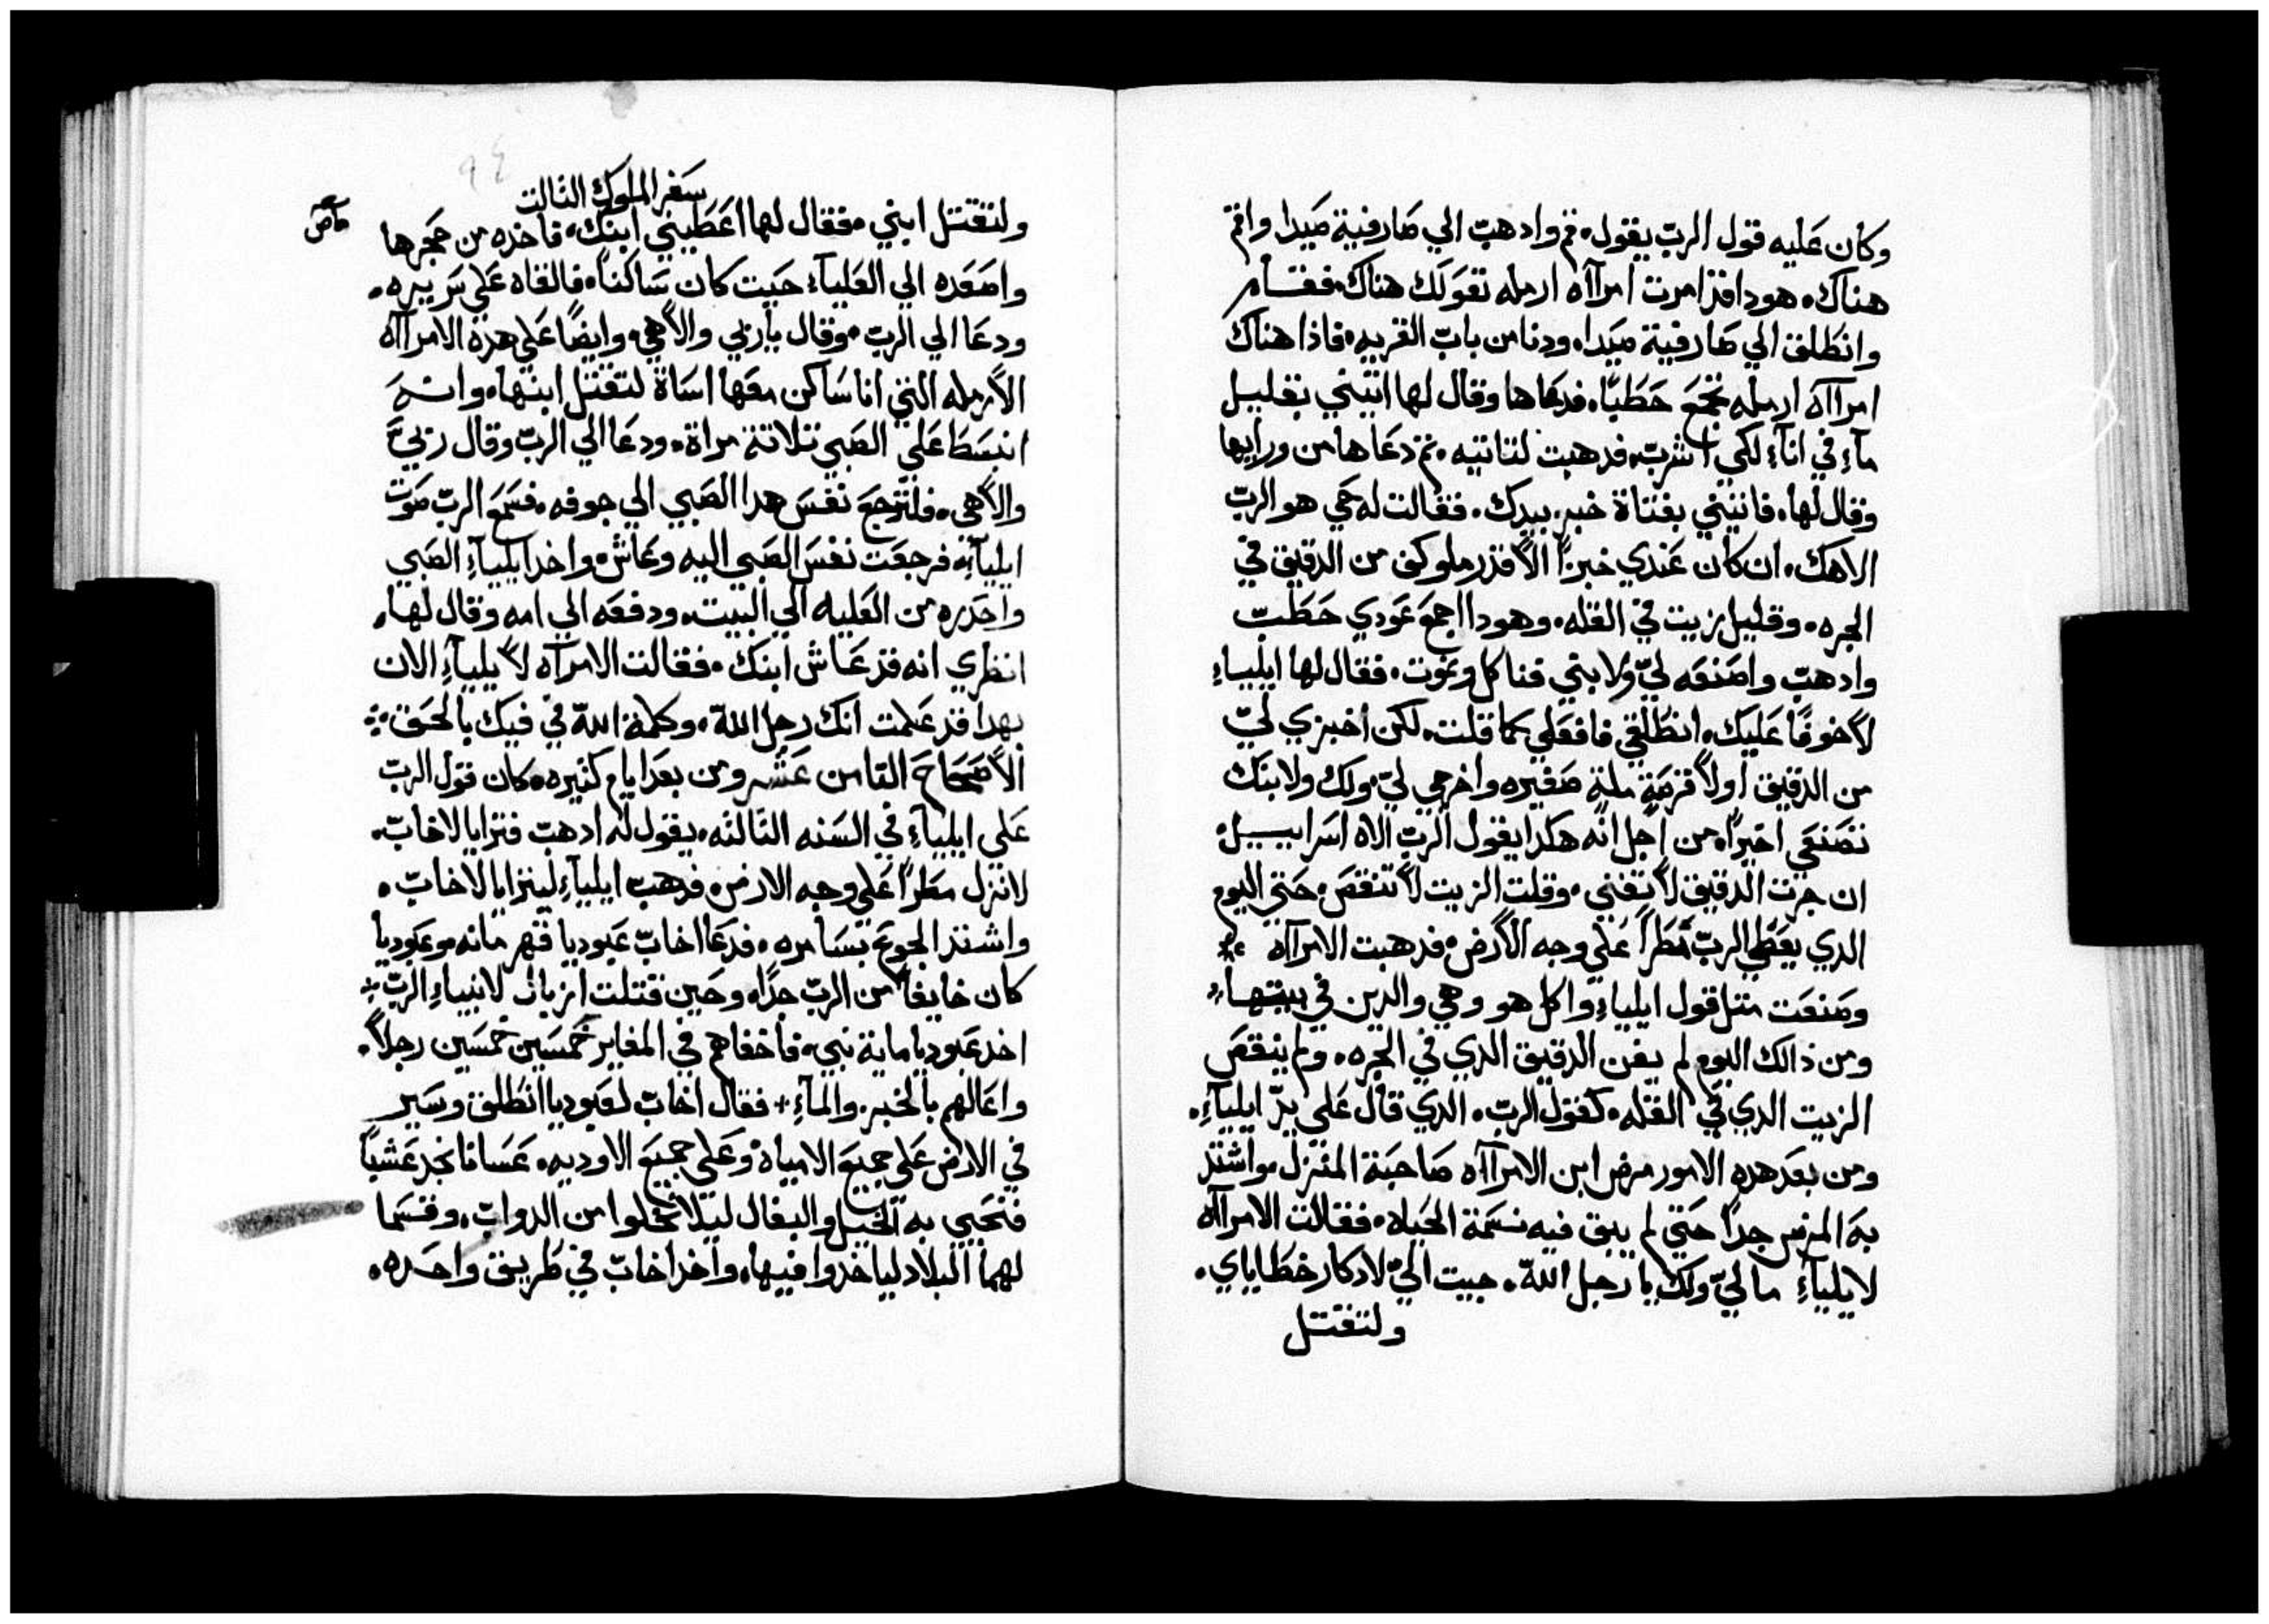 وكان عليه قول الرب يقول، قم وادهب الي صارفية صيدا واقم
هناك، هودا قد امرت امرااه ارمله تقولك هناك، فقام
وانطلق الي صارفية صيدا، ودنا من باب القريه، فاذا هناك
امرااه ارمله تجمع حطبا، فدعاها وقال لها اتيني بقليل
مآء في انآء لكي اشرب، فدهبت لتاتيه، تم دعاها من ورايها
وقال لها، فاتيني بفتاة خبز بيدك، فقالت له حي هو الرب
الاهك، ان كان عندي خبزا الا قدر ملو كف من الدقيق في
الجره، وقليل زيت في القله، وهودا اجمع عودي حطب
وادهب واصنعه لي ولابني فناكل ونموت، فقال لها ايلياء
لا خوفا عليك، انطلقي فافعلي كما قلت، لكن اخبزي لي
من الدقيق اولا قرصة ملة صغيره واخرجي لي، ولك ولابنك
تصنعي اخيرا، من اجل انه هكدا يقول الرب الاه اسراييل،
ان جرت الدقيق لا تفني، وقلت الزيت لا تنقص، حتي اليوم
الدي يعطي الرب مطرا علي وجه الارض، فدهبت الامرااه
وصنعت متل قول ايلياء واكل هو وهي والدين في بيتها،
ومن ذالك اليوم لم يفن الدقيق الدي في الجره، ولم ينقص
الزيت الدي في القله، كقول الرب، الدي قال علي يد ايليآء،
ومن بعد هده الامور مرض ابن الامرااه صاحبة المنزل، واشتد
به المرض جدا حتي لم يبق فيه نسمة الحياه، فقالت الامرااه
لايليآء ما لي ولك يا رجل الله، جيت الي لادكار خطاياي،
ولتقتل
سفر الملوك التالت
ولتقتل ابني، فقال لها اعطيني ابنك، فاخده من حجرها
واصعده الي العليآء حيت كان ساكنا، فالقاه علي سريره،
ودعا الي الرب، وقال يا ربي والاهي، وايضا علي هده الامرااه
الارمله التي انا ساكن معها اساة لتقتل ابنها، وانه
انبسط علي الصبي تلاتة مراة، ودعا الي الرب وقال ربي
والاهي، فلترجع نفس هدا الصبي الي جوفه، فسمع الرب صوت
ايليآء، فرجعت نفس الصبي اليه وعاش، واخد ايليآء الصبي
واحدره من العليه الي البيت، ودفعه الي امه وقال لها،
انظري انه قد عاش ابنك، فقالت الامرآه لايليآء الان
بهدا قد علمت انك رجل الله، وكلمة الله في فيك بالحق
الاصحاح التامن عشر ومن بعد ايام كتيره، كان قول الرب
علي ايليآء في السنه التالته، يقول له ادهب فترايا لاخاب،
لانزل مطرا علي وجه الارض، فدهب ايليآء ليترايا لاخاب،
واشتد الجوع بسامره، فدعا اخاب عبوديا قهرمانه، وعبوديا
كان خايفا من الرب جدا، وحين قتلت ازبال لانبياء الرب
اخد عبوديا ماية نبي، فاخفاهم في المغاير خمسين خمسين رجلا،
واعالهم بالخبز والمآء + فقال اخاب لعبوديا انطلق وسير
في الارض علي جميع الامياه وعلي جميع الاوديه، عسانا نجد عشبا
فتحيي به الخيل والبغال ليلا تخلوا من الدواب، وقسما
لهما البلاد لياخدوا فيها، واخد اخاب في طريق واحده،